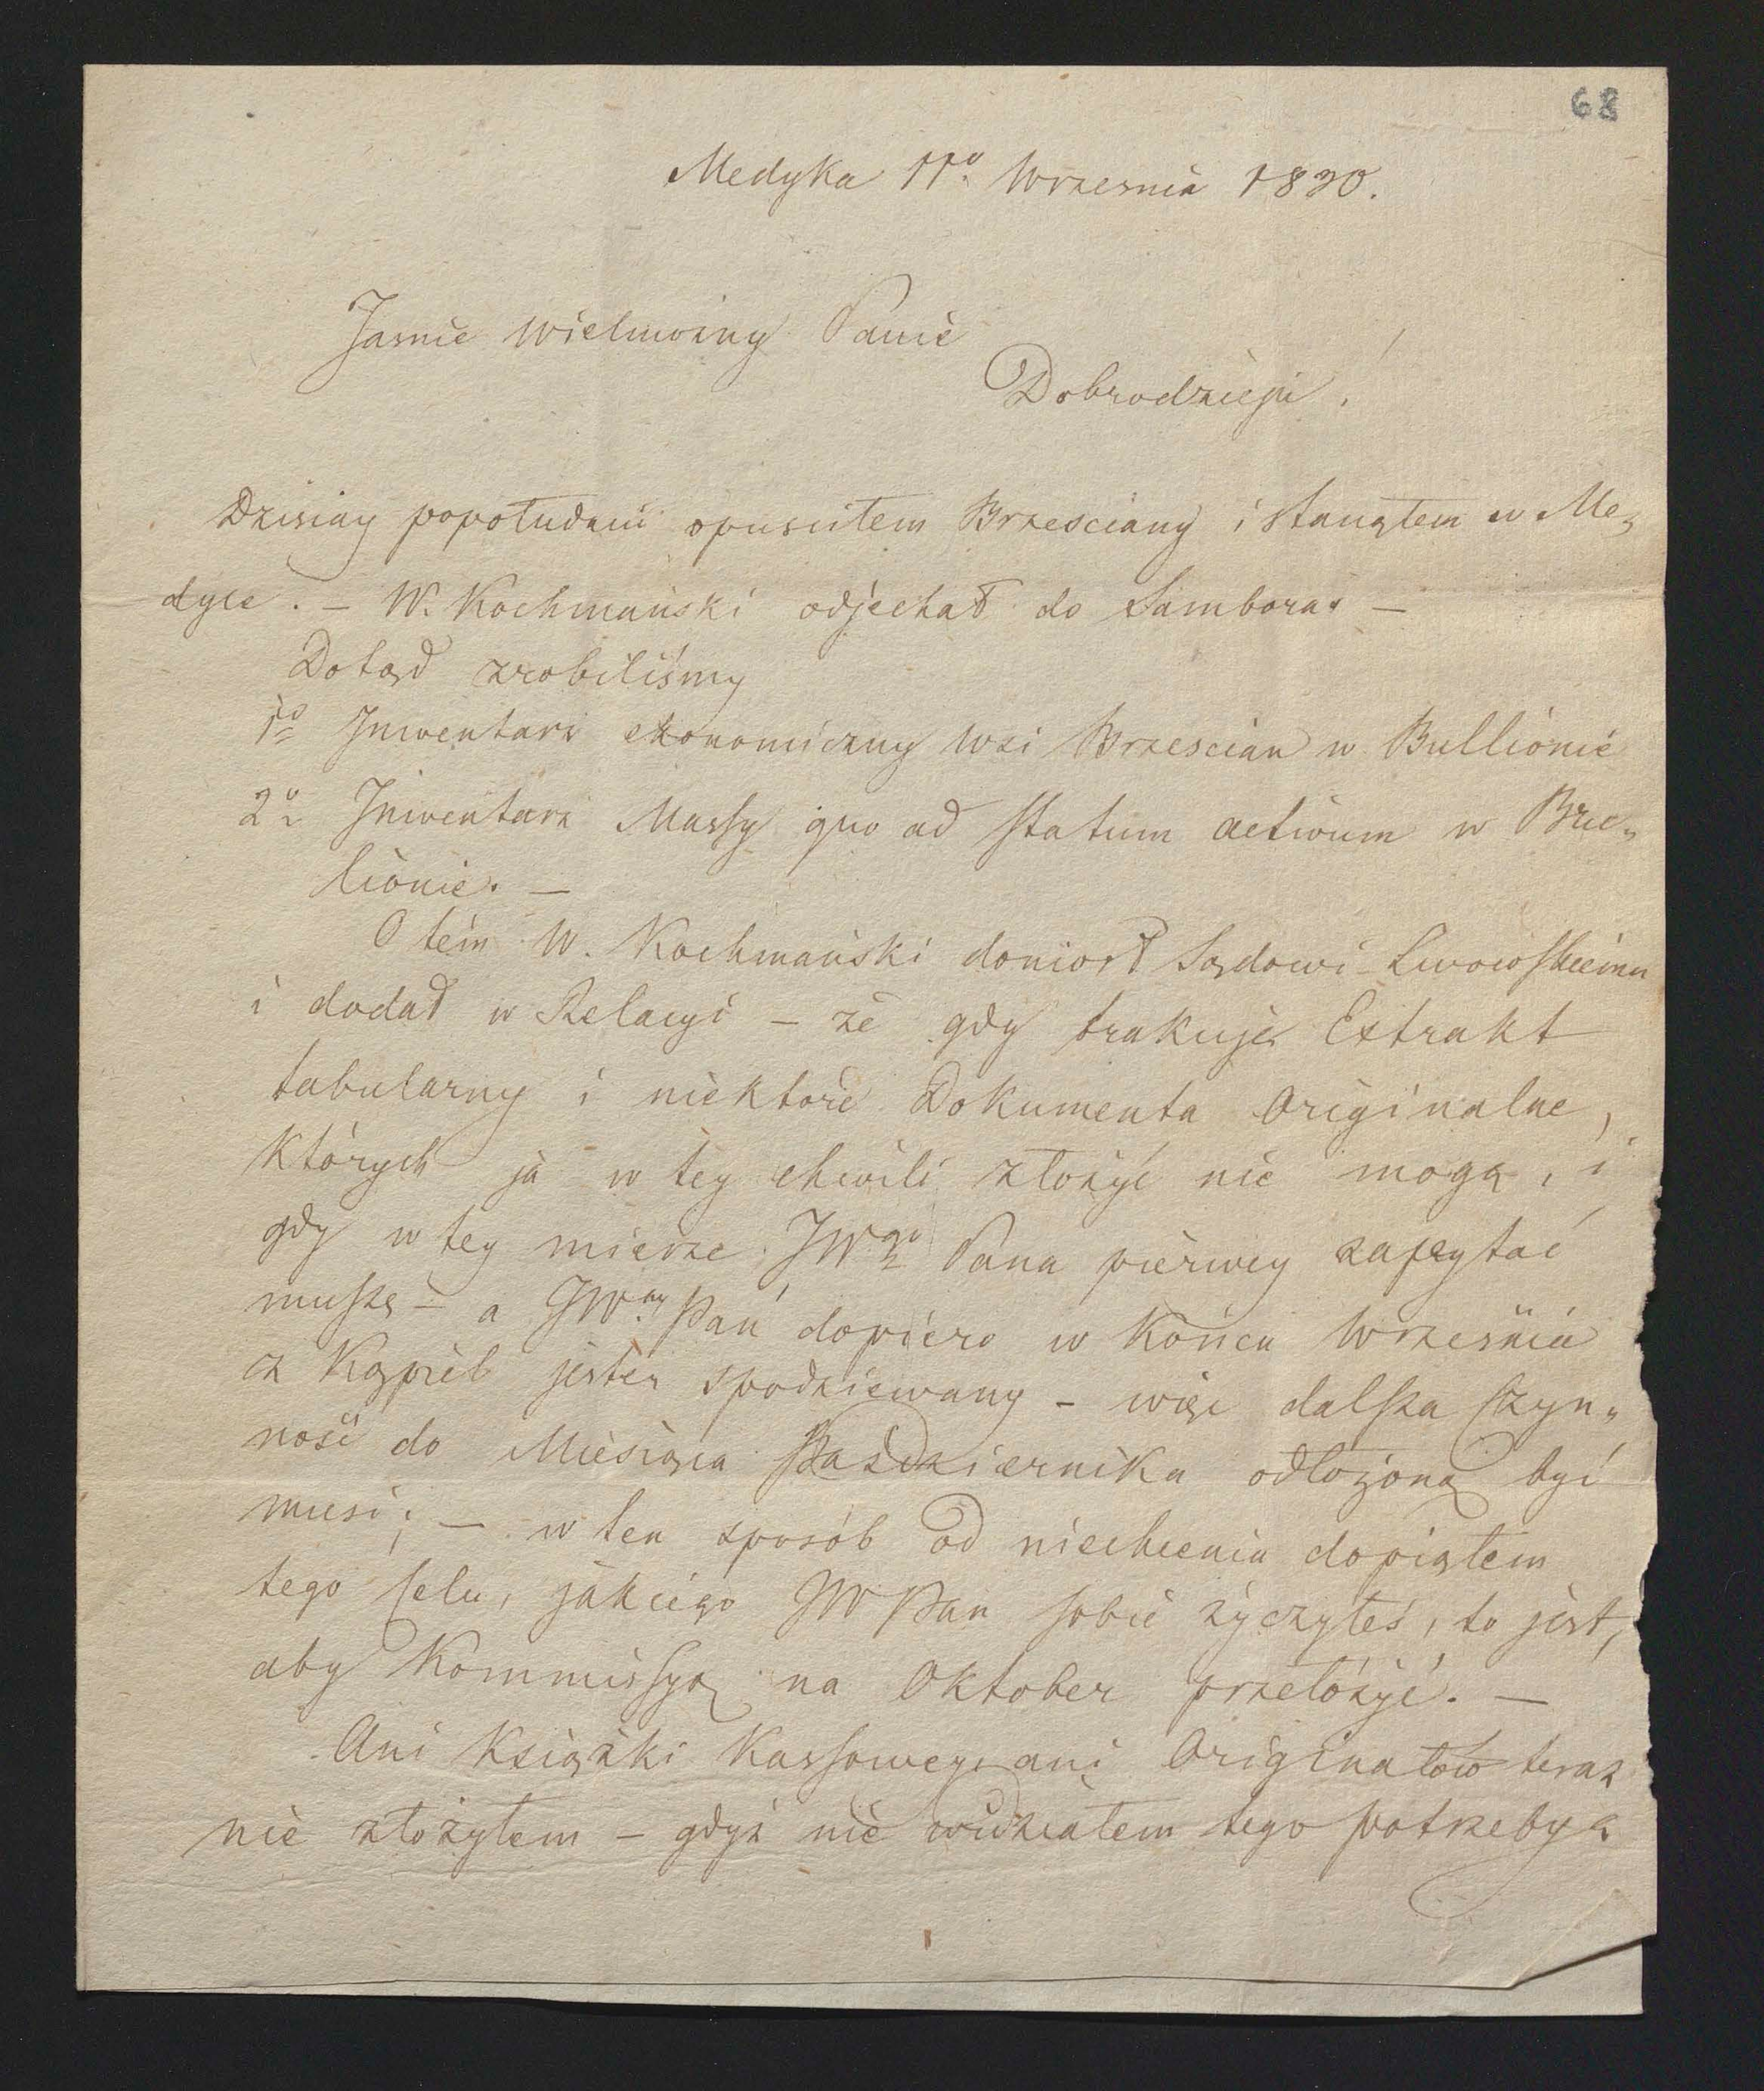 68
Medyka 11o Wrzesnia 1830.
Jasnie Wielmożny Panie
Dobrodzieju!
Dzisiay popołudniu opuscitem Brzesciany i stanąłem w Me„
dyce. – W. Kochmański odjechał do Sambora –
Dotąd zrobiliśmy
1o Inwentarz ekonomiczny Wsi Brzescian w Bullionie
2o Inwentarz Massy quo ad statum activum w Bru„
lionie. –
O tém W. Kochmański doniosł Sądowi Lwowskiemu
i dodał w Relacyi – że gdy brakuje Extrakt
tabularny i niektore Dokumenta Originalne,
których ja w tey chwili złożyć nie mogą, i
gdy w tey mierze JWgo Pana pierwey zapytać
muszę – a JWny Pan dopiero w Końcu Wrzesnia
z Kąpieli jesteś spodziewany – więc dalsza Czyn„
ność do Miesiąca Października odłożoną być
musi; – w ten sposób od niechcenia dopiąłem
tego Celu, jakiego JW Pan sobie życzyłeś, to jest,
aby Kommissyą na Oktober przełożyć. –
Ani Książki Kassowey ani Originałów teraz
nie złożyłem – gdyż nie widziałem tego potrzeby